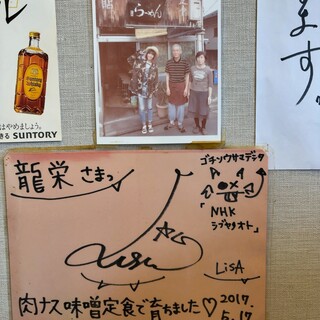 らーめん
ます。
はやめましょう。
きる SUNTORY
龍栄さまっ
ゴチソウサマデシタ
NHK
シブヤノオト
LiSA
肉ナス味噌定食で育ちました♡
2017.
5.17